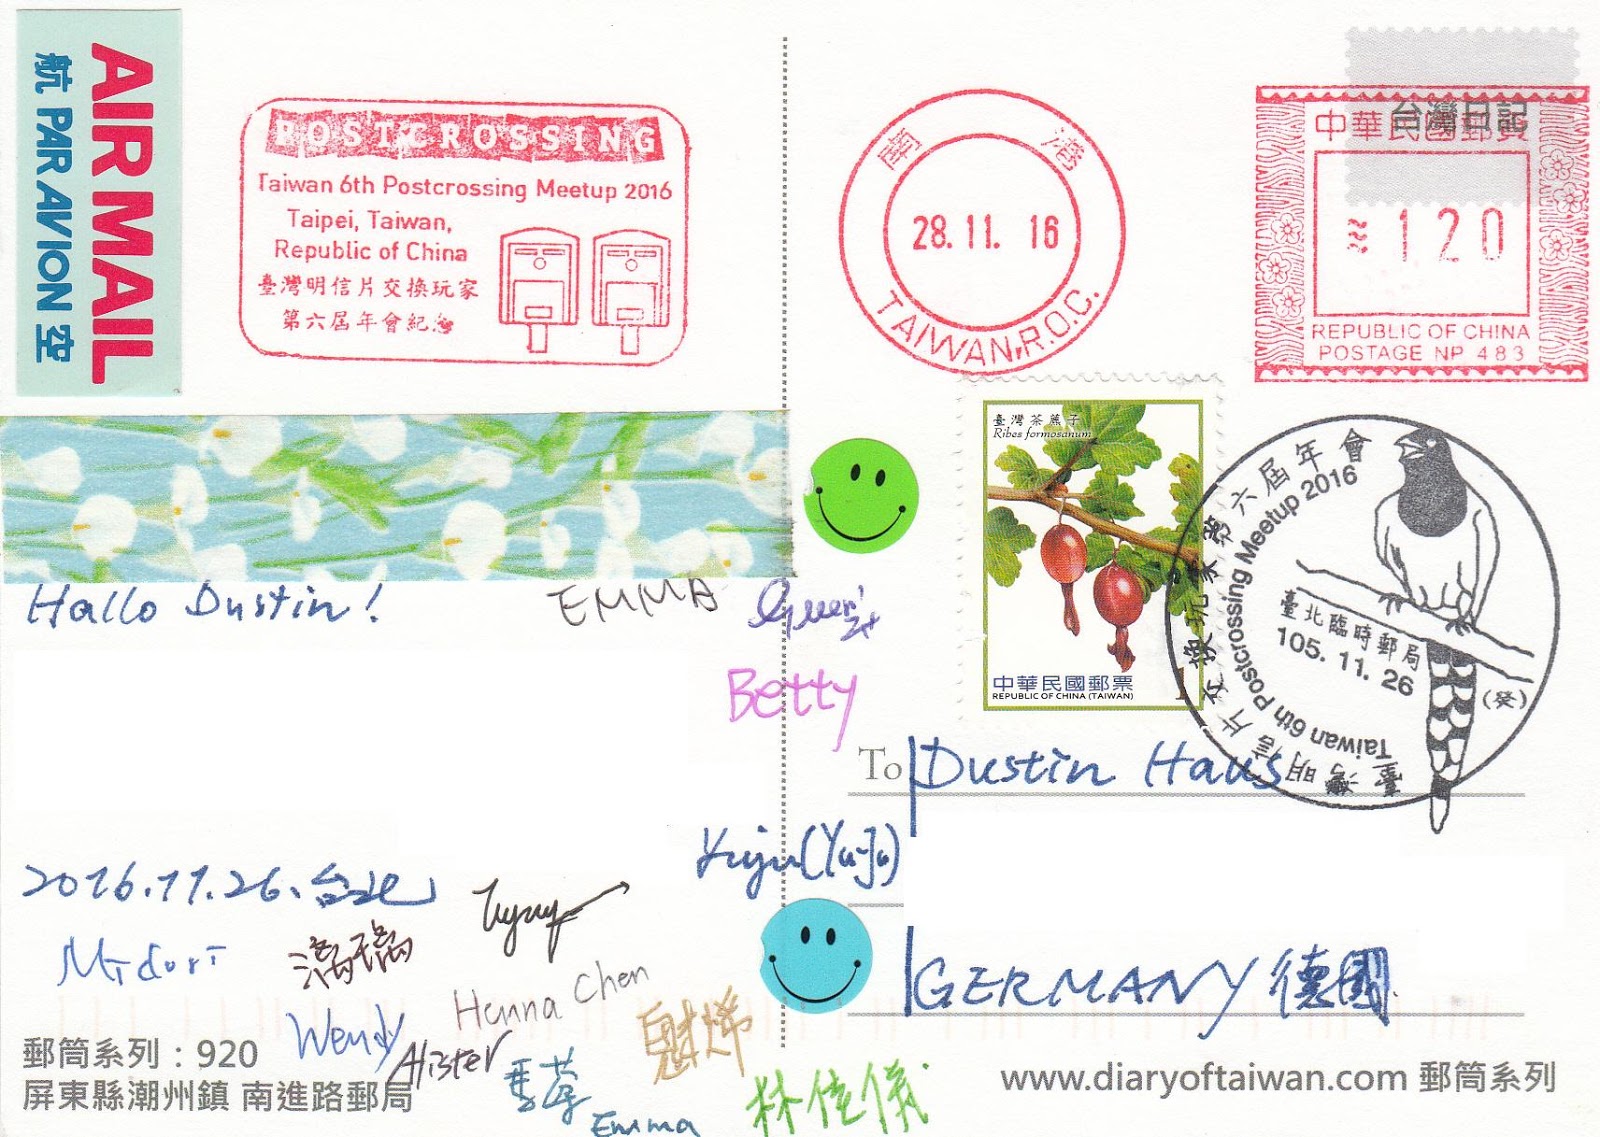 AIR MAIL
航 PAR AVION 空
POSTCROSSING
Taiwan 6th Postcrossing Meetup 2016
Taipei, Taiwan,
Republic of China
臺灣明信片交換玩家
第六屆年會紀念
南 港
28.11. 16
TAIWAN, R.O.C.
台灣日記
中華民國郵資
≈120
REPUBLIC OF CHINA
POSTAGE NP 483
臺灣茶藨子
Ribes formosanum
中華民國郵票
REPUBLIC OF CHINA (TAIWAN)
1
臺灣明信片交換玩家第六屆年會
Taiwan 6th Postcrossing Meetup 2016
臺北臨時郵局
105. 11. 26
(癸)
Hallo Dustin!
EMMA
Betty
To Dustin Haus
Yuju (Yu-Ju)
2016.11.26. 台北
Midori
Henna Chen
Wendy
Alister
Emma
林佳儀
GERMANY 德國
郵筒系列：920
屏東縣潮州鎮 南進路郵局
www.diaryoftaiwan.com 郵筒系列